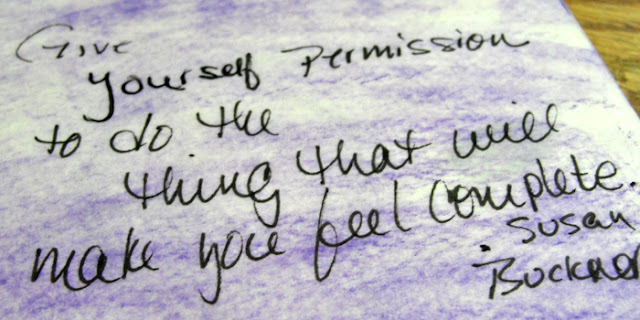 Give
yourself Permission
to do the
thing that will
make you feel complete.
. Susan
Buckner